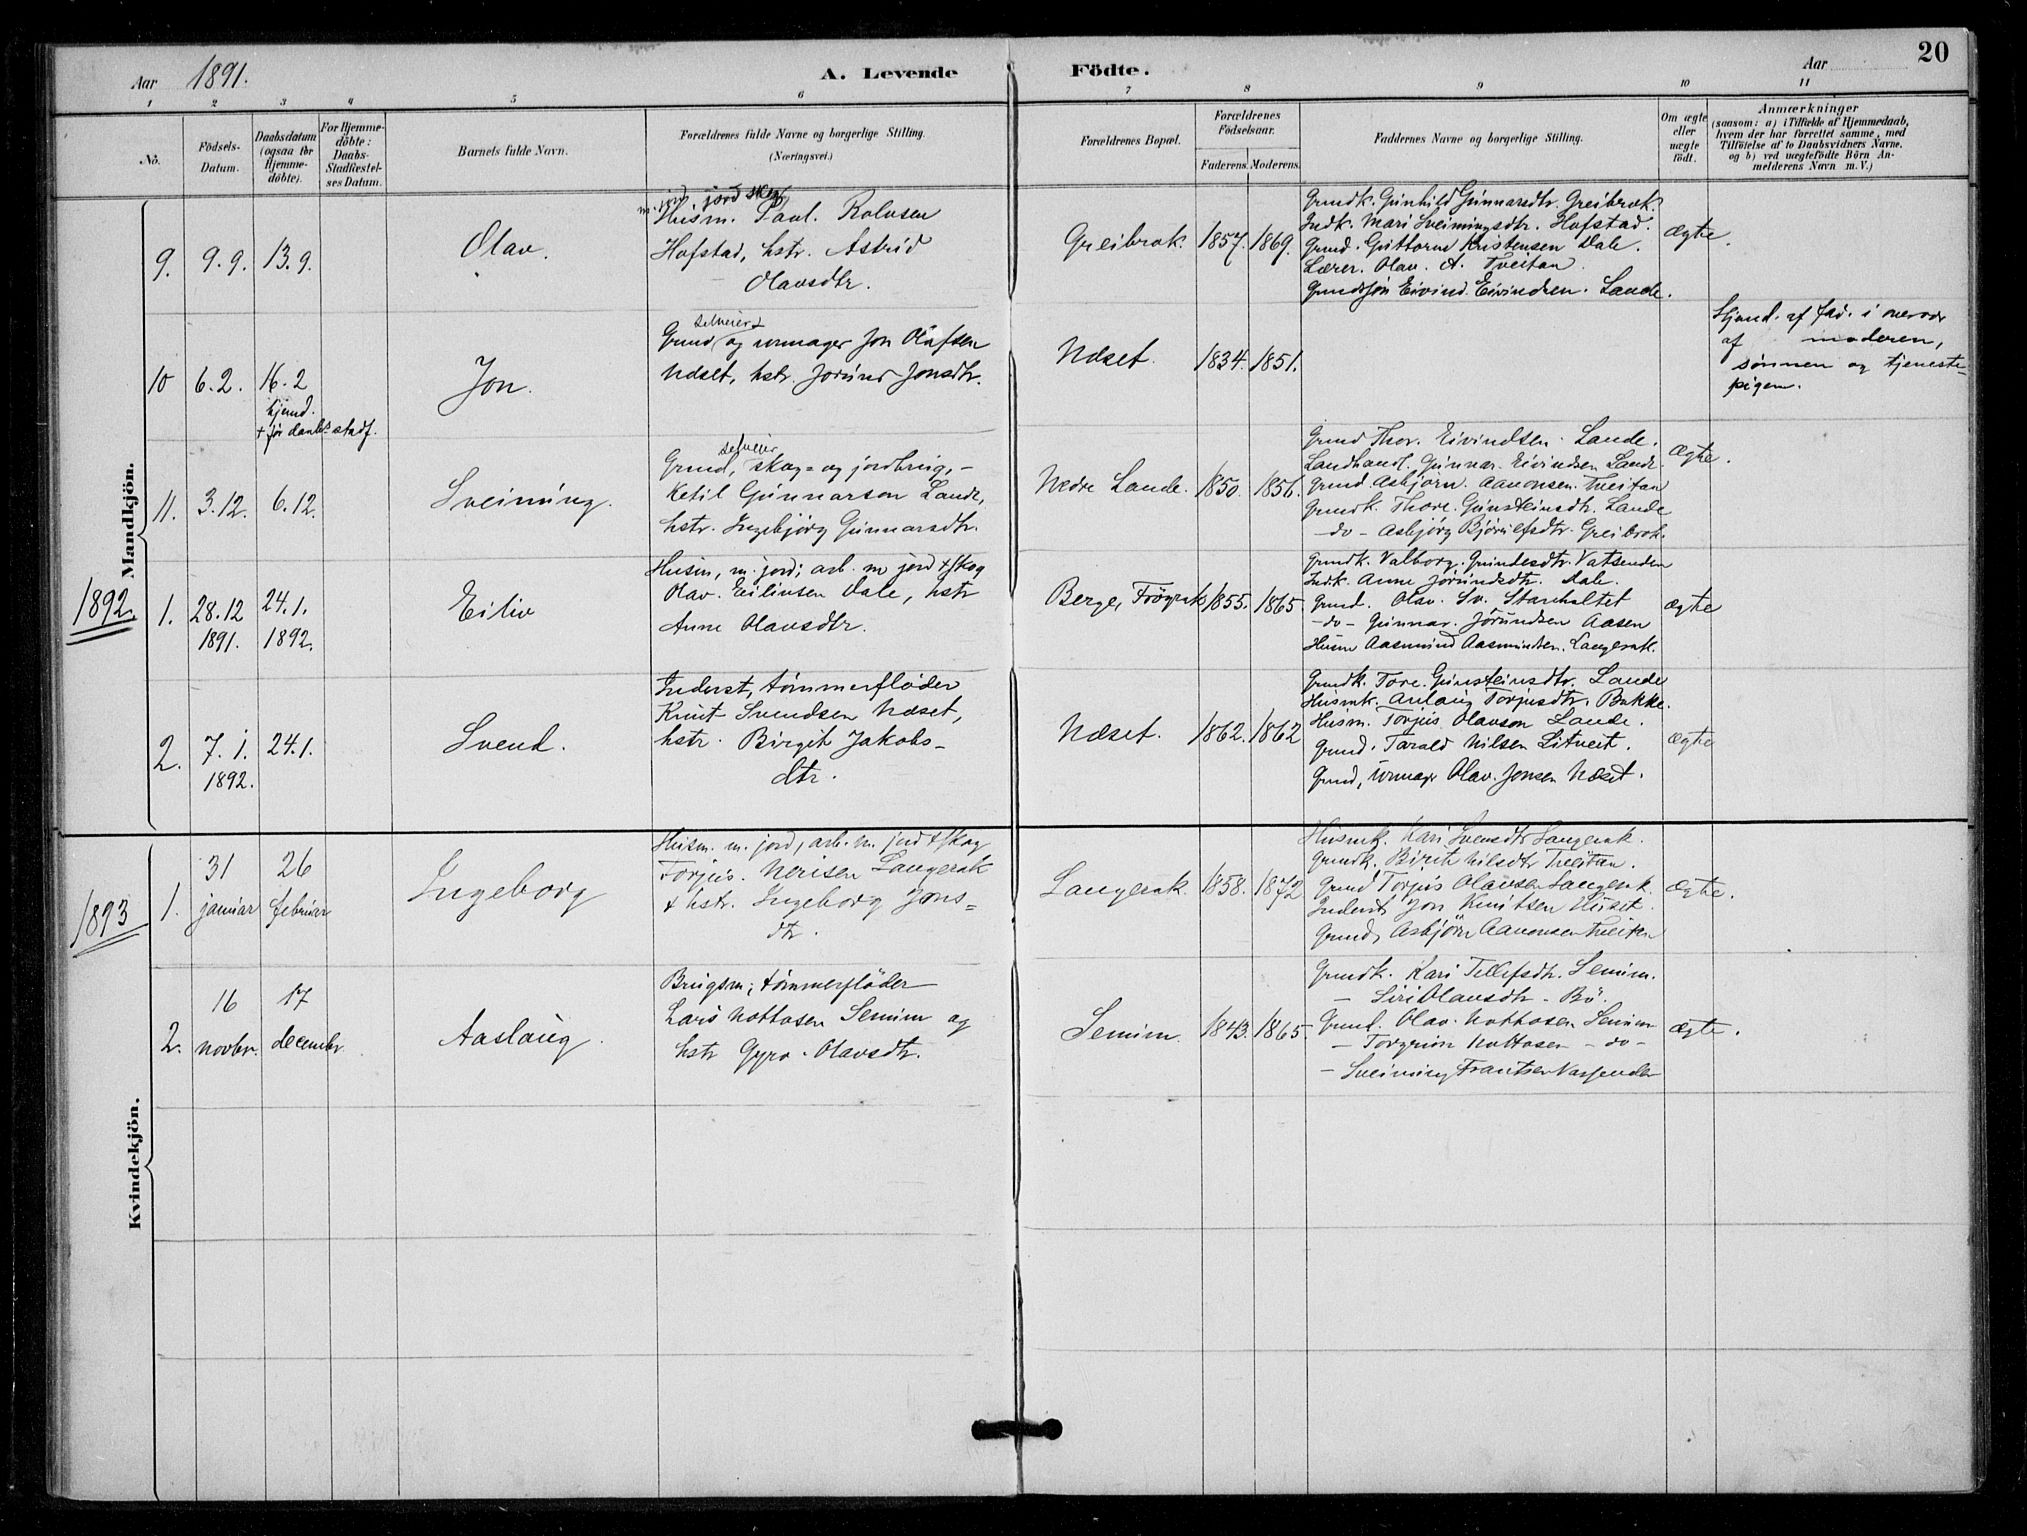 Aar 1891.
A. Levende
Födte.
Aar
20
1 2 3 4 5 6 7 8 9 10 11
No.
Födsels-Datum.
Daabsdatum (ogsaa for Hjemme-döbte).
For Hjemme-döbte: Daabs-Stadfæstel-ses Datum.
Barnets fulde Navn.
Forældrenes fulde Navne og borgerlige Stilling.
(Næringsvei.)
Forældrenes Bopæl.
Forældrenes Födselsaar.
Faderens. Moderens.
Faddernes Navne og borgerlige Stilling.
Om ægte eller uægte født.
Anmærkninger
(saasom: a) i Tilfælde af Hjemmedaab,
hvem der har forrettet samme, med
Tilföielse af to Daabsvidners Navne,
og b) ved uægtefödte Börn An-
melderens Navn m. V.)
Mandkjön.
9. 9.9. 13.9.
Olav.
m. jord, jord skog
Husm. Paul. Rolvsen
Hofstad, hstr. Astrid
Olavsdtr.
Greibrok. 1857. 1869.
Grundk. Gunhild Gunnarsdtr. Greibrok.
Indk. Mari Sveinungsdtr. Hofstad.
Grund. Guttorm Kristensen Dale.
Lærer. Olav. A. Tveitan.
Grundsøn Eivind Eivindsen. Lande.
Ægte.
10 6.2. 16.2
hjemd.
+ før daabs stadf.
Jon.
selveier
Grund og urmager Jon Olafsen
Næset, hstr. Jorund Jonsdtr.
Næset. 1834. 1851.
Hjemd. af fad. i overvær
af moderen,
sønnen og tjeneste-
pigen.
11. 3.12. 6.12.
Sveinung.
selveier
Grund, skog= og jordbrug,-
Ketil Gunnarson Lande,
hstr. Ingebjörg Gunnarsdtr.
Nedre Lande. 1850. 1856.
Grund Thor. Eivindsen. Lande.
Landhandl. Gunnar. Eivindsen Lande.
Grund. Asbjörn. Aanonsen. Tveitan
Grundk. Thore. Gunsteinsdtr. Lande
-do- Asbjörg Bjørulfsdtr. Greibrok.
Ægte.
1892.
1. 28.12 24.1.
1891. 1892.
Eiliv
Husm, m. jord; arb. m jord + skog
Olav. Eilivsen Dale, hstr
Anne Olavsdtr.
Berge, Frøysak 1855. 1865.
Grundk. Valborg. Gundesdtr. Vatsenden
Indk. Anne Jørundsdtr. Dale.
Grund. Olav. Sv. Starholtet
-do- Gunnar. Jørundsen Aasen
Husm Aasmund Aasmundsen. Langerak.
ægte
2. 7.1. 24.1.
1892.
Svend.
Inderst, tømmerfløder
Knut Svendsen Næset,
hstr. Birgit Jakobs-
dtr.
Næset. 1862. 1862
Grundk. Tore. Gunsteinsdtr. Lande
Husmk. Aslaug Torjusdtr. Bakke.
Husm. Torjus Olavson Lande.
Grund. Tarald Nilsen Litveit.
Grund, urmagr Olav. Jonsen Næset.
ægte
Kvindekjön.
1893
1. 31 januar 26 februar
Ingeborg
Husm. m. jord, arb. m. jord + skog
Torjus. Nerisen Langerak
+ hstr. Ingeborg Jons-
dtr.
Langerak. 1858. 1872
Husmk. Kari Svensdtr Langerak.
Grundk. Birite Nilsdtr Tveitan.
Grund Torjus Olavsen Langerak.
Inderst Jon Knutsen Huset.
Grund, Asbjörn Aanonsen Tveiten
Ægte.
2. 16 novbr. 17 decembr
Aaslaug.
Brugsm; tømmerfløder
Lars Nottosen Semim og
hstr Gyro. Olavsdtr.
Semim. 1843. 1865.
Grundk. Kari Tellefsdtr. Semim.
- Siri Olavsdtr. Bö.
Grund. Olav. Nottosen Semim
- Torgrim Nottosen -do-
- Sveinung Frantsen Vassenden
ægte.